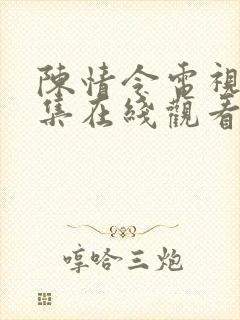 陳情令電視
集在綫觀看
哼哈三炮